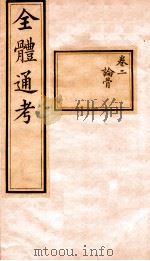 全體通考
卷二
論骨
mtoou.info